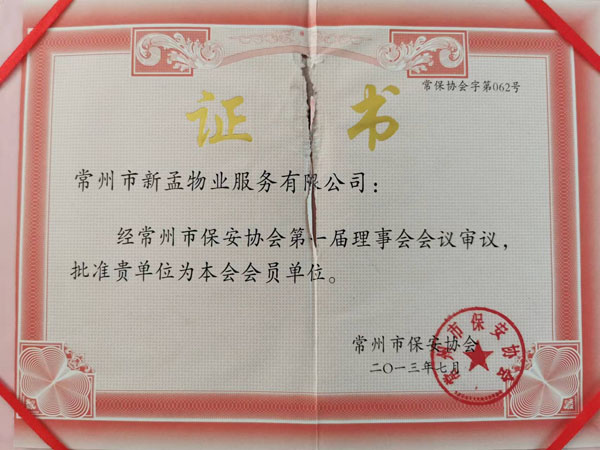 常保协会字第062号
证书
常州市新孟物业服务有限公司：
经常州市保安协会第一届理事会会议审议，
批准贵单位为本会会员单位。
常州市保安协会
二〇一三年七月
常州市保安协会